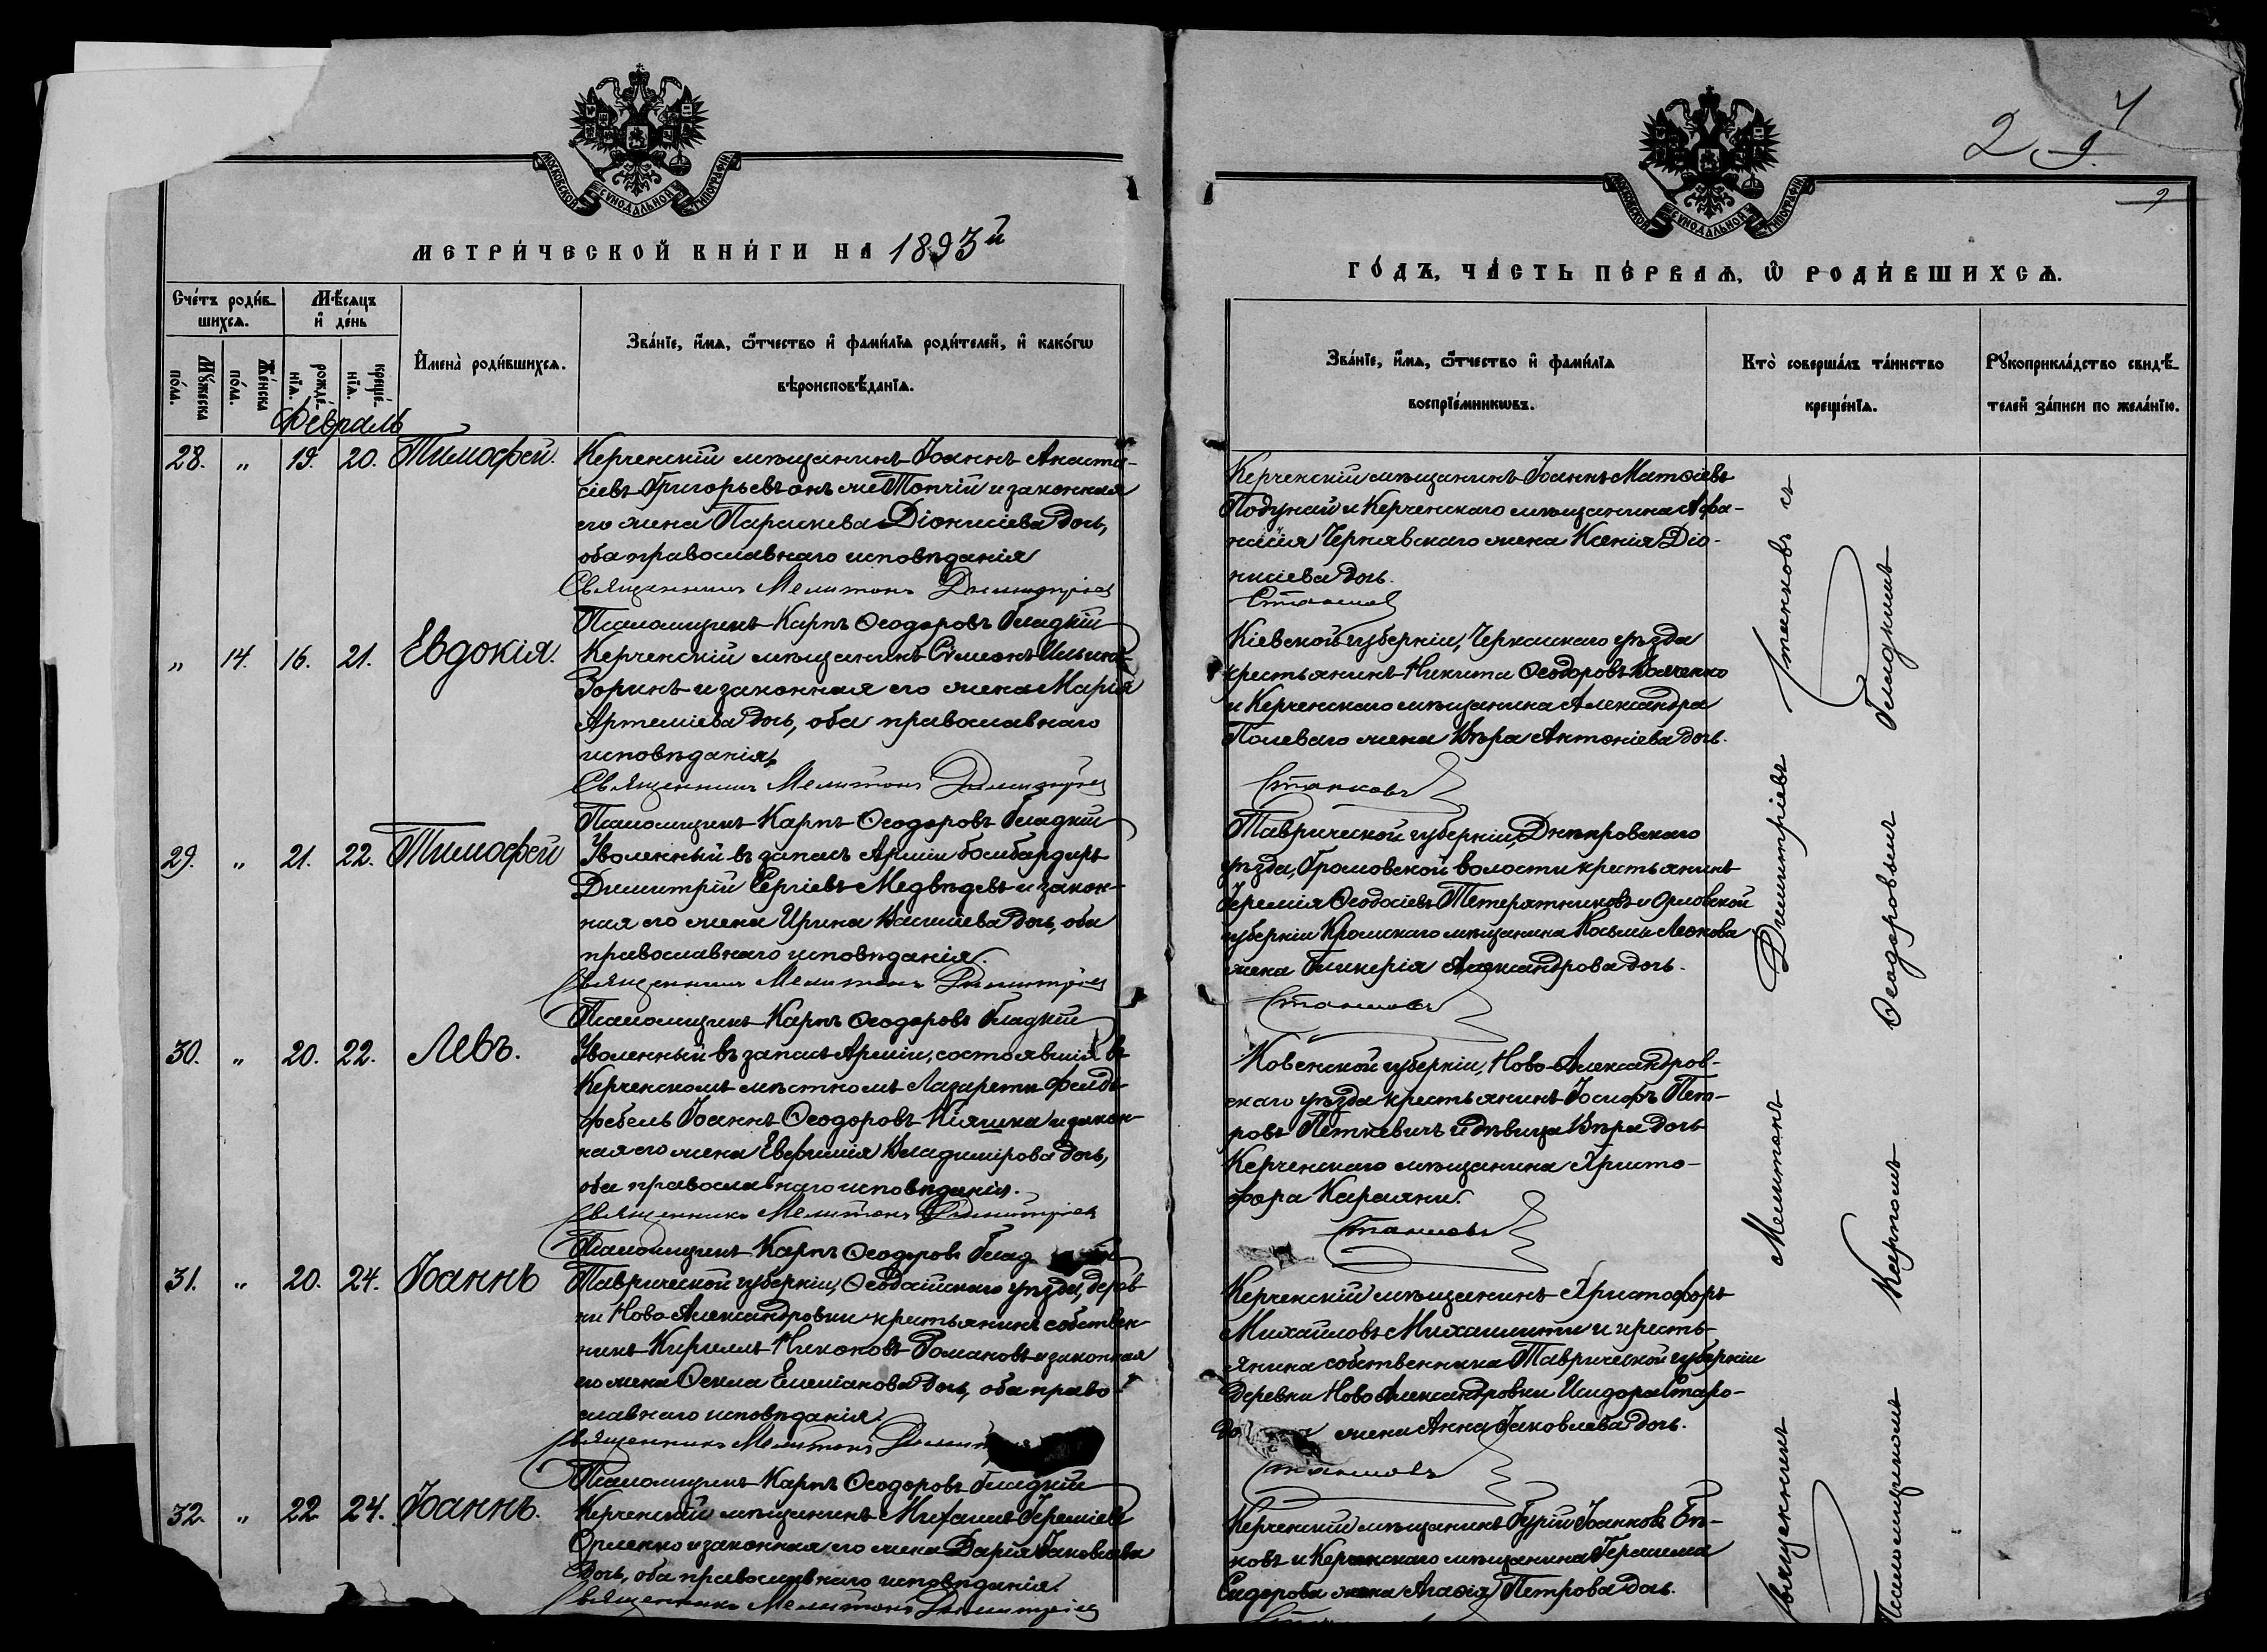 МОСКОВСКОЙ СѴНОДАЛЬНОЙ ТИПОГРАФІИ
МЕТРИ́ЧЕСКОЙ КНИ́ГИ НА 1893й
Сче́тъ роди́в-
шихсѧ.
Мѣ́сѧцъ
и҆ де́нь
Мꙋ́жеска
по́ла.
Же́нска
по́ла.
рожде́-
нїѧ.
креще́-
нїѧ.
И҆мена̀ роди́вшихсѧ.
Зва́нїе, и҆́мѧ, ѻ҆́тчество и҆ фами́лїѧ роди́телей, и҆ како́гѡ
вѣроисповѣ́данїѧ.
Февраль
28. " 19. 20. Тимофей.
Керченскій мѣщанинъ Іоаннъ Анаста-
сіевъ Григорьевъ онъ же Топчій и законная
его жена Параскева Діонисіева дочь,
оба православнаго исповѣданія
Священникъ Мелитонъ Димитріев
Псаломщикъ Карпъ Ѳеодоровъ Гладкій
" 14. 16. 21. Евдокія.
Керченскій мѣщанинъ Сѵмеонъ Ильинъ
Зоринъ и законная его жена Марія
Артеміева дочь, оба православнаго
исповѣданія,
Священникъ Мелитонъ Димитріев
Псаломщикъ Карпъ Ѳеодоровъ Гладкій
29. " 21. 22. Тимофей
Уволенный въ запасъ Арміи бомбардиръ
Димитрій Сергіевъ Медвѣдевъ и закон-
ная его жена Ирина Василіева дочь, оба
православнаго исповѣданія.
Священникъ Мелитонъ Димитріев
Псаломщикъ Карпъ Ѳеодоровъ Гладкій
30. " 20. 22. Левъ.
Уволенный въ запасъ Арміи, состоявшій въ
Керченскомъ мѣстномъ Лазаретѣ фельд-
фебель Іоаннъ Ѳеодоровъ Кіяшка и закон-
ная его жена Евфимія Владимірова дочь,
оба православнаго исповѣданія.
Священникъ Мелитонъ Димитріев
Псаломщикъ Карпъ Ѳеодоровъ Глад
31. " 20. 24. Іоаннъ
Таврической губерніи, Ѳеодосійскаго уѣзда, дерев-
ни Ново Александровки крестьянинъ собствен-
никъ Кириллъ Никоновъ Романовъ и законная
его жена Ѳекла Емеліанова дочь, оба право-
славнаго исповѣданія.
Священникъ Мелитонъ Димит
Псаломщикъ Карпъ Ѳеодоровъ Гладкій
32. " 22. 24. Іоаннъ.
Керченскій мѣщанинъ Михаилъ Іереміевъ
Орленко и законная его жена Дарія Іаковлева
дочь, оба православнаго исповѣданія.
Священникъ Мелитонъ Димитріев
2 9. 4
МОСКОВСКОЙ СѴНОДАЛЬНОЙ ТИПОГРАФІИ
ГО́ДЪ, ЧА́СТЬ ПЕ́РВАѦ, Ѡ҆ РОДИ́ВШИХСѦ.
Зва́нїе, и҆́мѧ, ѻ҆́тчество и҆ фами́лїѧ
воспрїе́мникѡвъ.
Кто̀ соверша́лъ та́инство
креще́нїѧ.
Рꙋкоприкла́дство свидѣ́-
телей за́писи по жела́нїю.
Керченскій мѣщанинъ Іоаннъ Матѳіевъ
Подунай и Керченскаго мѣщанина Афа-
насія Чернявскаго жена Ксенія Діо-
нисіева дочь.
Станковъ
Кіевской губерніи, Черкасскаго уѣзда
крестьянинъ Никита Ѳеодоровъ
и Керченскаго мѣщанина Александра
Полеваго жена Вѣра Антоніева дочь.
Станковъ
Таврической губерніи, Днѣпровскаго
уѣзда, Громовской волости крестьянинъ
Іеремія Ѳеодосіевъ Тетерятниковъ и Орловской
губерніи Кромскаго мѣщанина Косьмы Леонова
жена Гликерія Александрова дочь.
Станковъ
Ковенской губерніи, Ново-Александров-
скаго уѣзда крестьянинъ Іосифъ Пет-
ровъ Петкевичъ и дѣвица Вѣра дочь
Керченскаго мѣщанина Христо-
фора Караяни.
Станковъ
Керченскій мѣщанинъ Христофоръ
Михаиловъ Михаилити и кресть-
янина собственника Таврической губерніи
деревни Ново Александровки Исидора Старо-
до жена Анна Іаковлева дочь.
Станковъ
Керченскій мѣщанинъ Гурій Іоанновъ Бѣ-
ковъ и Керченскаго мѣщанина Герасима
Сидорова жена Агаѳія Петрова дочь.
Священникъ Мелитонъ Димитріевъ Станковъ съ
Псаломщикомъ Карпомъ Ѳеодоровымъ Гладкимъ